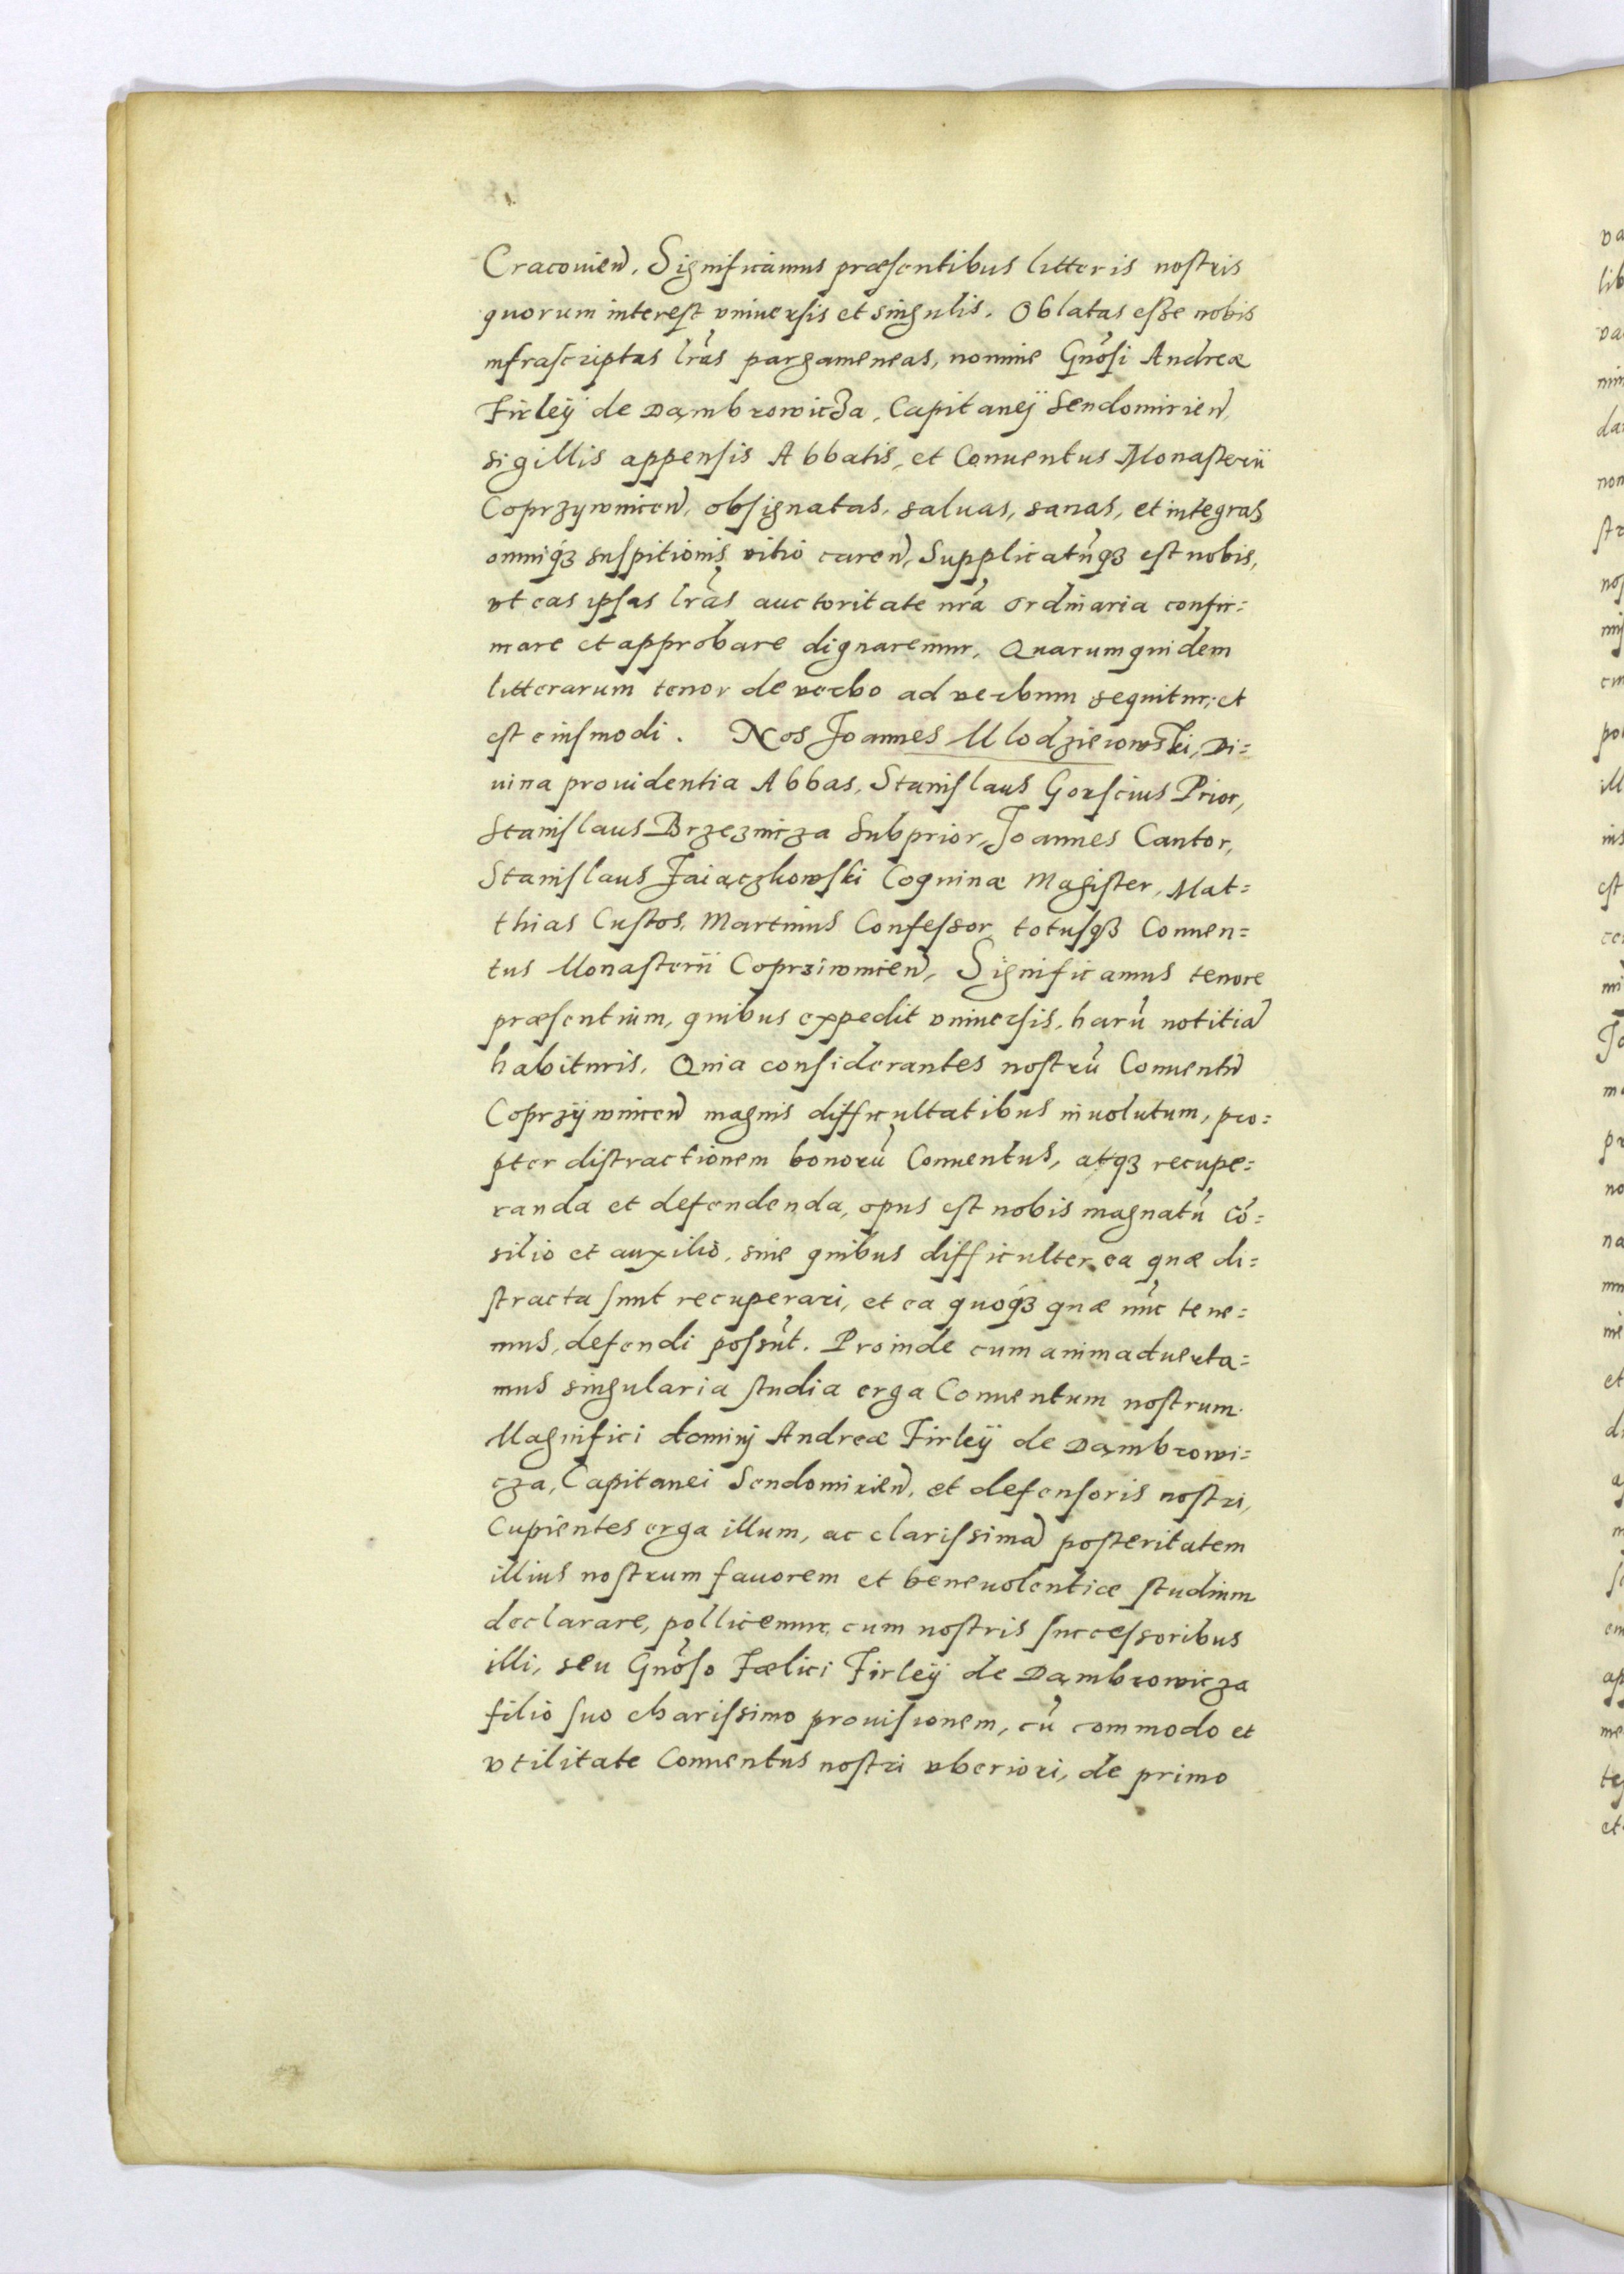 Cracouien̄. Significamus præsentibus litteris nostris
quorum interest vniuersis et singulis. Oblatas esse nobis
infrascriptas lr̃as pargameneas, nomine Gñosi Andreæ
Firleÿ de Dąmbrowicza, Capitaneÿ Sendomirien̄,
sigillis appensis Abbatis, et Conuentus Monasterii
Coprzywnicen̄, obsignatas, saluas, sanas, et integras
omniq́ȝ suspitionis vitio caren̄, Supplicatũqȝ est nobis,
vt eas ipsas lr̃as auctoritate nr̃a ordinaria confir=
mare et approbare dignaremur. Quarumquidem
litterarum tenor de verbo ad verbum sequitur, et
est eiusmodi. Nos Joannes Mlodzieiowski, Di=
uina prouidentia Abbas, Stanislaus Gorscius Prior,
Stanislaus Brzeznicza Subprior, Joannes Cantor,
Stanislaus Zaiączkowski Coquinæ Magister, Mat=
thias Custos, Martinus Confessor, totusqȝ Conuen=
tus Monasterii Coprziwnicen̄, Significamus tenore
præsentium, quibus expedit vniuersis, harũ notitiã
habituris. Quia considerantes nostrũ Conuentũ
Coprzÿwnicen̄ magnis difficultatibus inuolutum, pro=
pter distractionem bonorũ Conuentus, atqȝ recupe=
randa et defendenda, opus est nobis magnatũ cõ=
silio et auxilio, sine quibus difficulter ea quæ di=
stracta sunt recuperari, et ea quoq́ȝ quæ nũc tene=
mus, defendi possũt. Proinde cum animaduerta=
mus singularia studia erga Conuentum nostrum
Magnifici dominj Andreæ Firleÿ de Dąmbrowi=
cza, Capitanei Sendomirien̄, et defensoris nostri,
Cupientes erga illum, ac clarissimã posteritatem
illius nostrum fauorem et beneuolentiæ studium
declarare, pollicemur, cum nostris successoribus
illi, seu Gñoso Fœlici Firleÿ de Dąmbrowicza
filio suo charissimo prouisionem, cũ commodo et
vtilitate Conuentus nostri vberiori, de primo